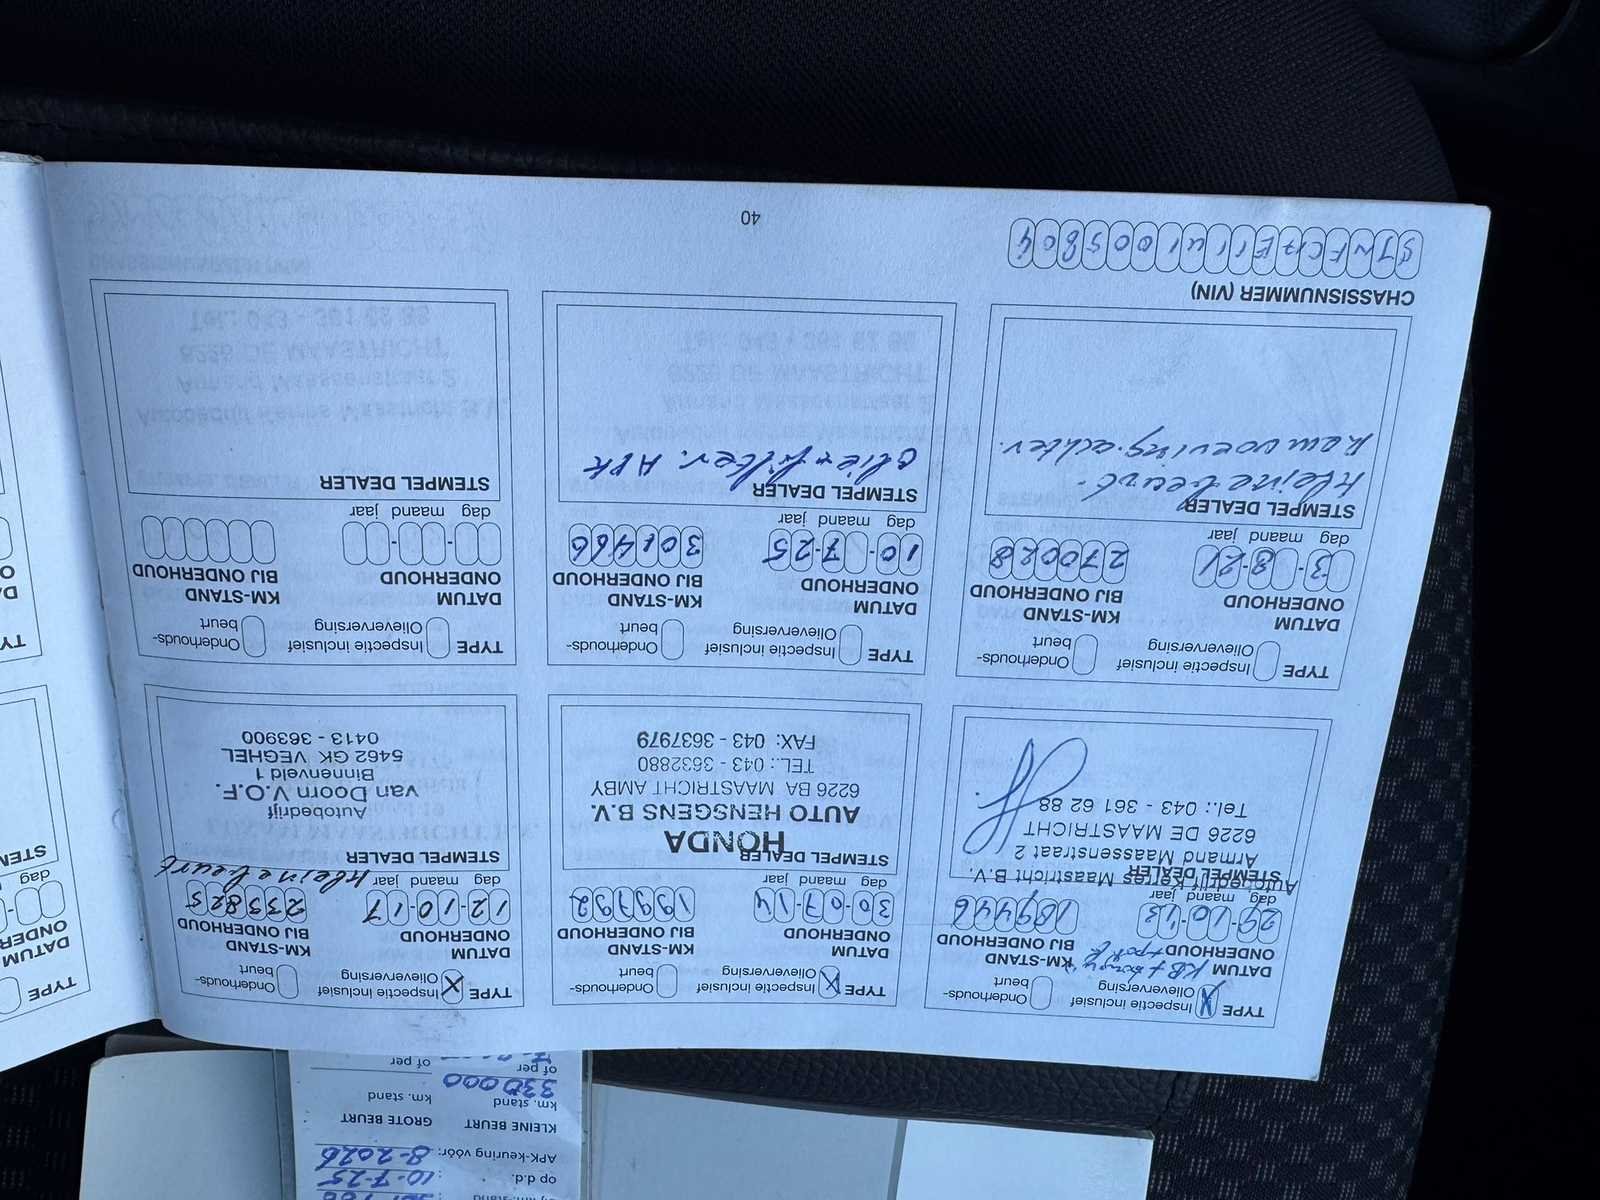 op d.d. : 10-7-25
APK-keuring vóór: 8-2026
KLEINE BEURT GROTE BEURT
km. stand km. stand
330000
of per of per
TYPE X Inspectie inclusief Olieverversing Onderhouds-beurt
DATUM ONDERHOUD KM-STAND BIJ ONDERHOUD
29-10-13 189446
dag maand jaar
STEMPEL DEALER
Autobedrijf Kerres Maastricht B.V.
Armand Maassenstraat 2
6226 DE MAASTRICHT
Tel.: 043 - 361 62 88
TYPE X Inspectie inclusief Olieverversing Onderhouds-beurt
DATUM ONDERHOUD KM-STAND BIJ ONDERHOUD
30-07-14 199792
dag maand jaar
STEMPEL DEALER
HONDA
AUTO HENSGENS B.V.
6226 BA MAASTRICHT AMBY
TEL.: 043 - 3632880
FAX: 043 - 3637979
TYPE X Inspectie inclusief Olieverversing Onderhouds-beurt
DATUM ONDERHOUD KM-STAND BIJ ONDERHOUD
12-10-17 235825
dag maand jaar kleine beurt
STEMPEL DEALER
Autobedrijf
van Doorn V.O.F.
Binnenveld 1
5462 GK VEGHEL
0413 - 363900
TYPE Inspectie inclusief Olieverversing Onderhouds-beurt
DATUM ONDERHOUD KM-STAND BIJ ONDERHOUD
3-8-21 270028
dag maand jaar
STEMPEL DEALER
kleine beurt.
Remvoering achter.
TYPE Inspectie inclusief Olieverversing Onderhouds-beurt
DATUM ONDERHOUD KM-STAND BIJ ONDERHOUD
10-7-25 301466
dag maand jaar
STEMPEL DEALER
olie + filter. APK
TYPE Inspectie inclusief Olieverversing Onderhouds-beurt
DATUM ONDERHOUD KM-STAND BIJ ONDERHOUD
dag maand jaar
STEMPEL DEALER
CHASSISNUMMER (VIN)
SJNFCAE11U1005804
40
TYPE
DATUM
ONDERHOUD
dag